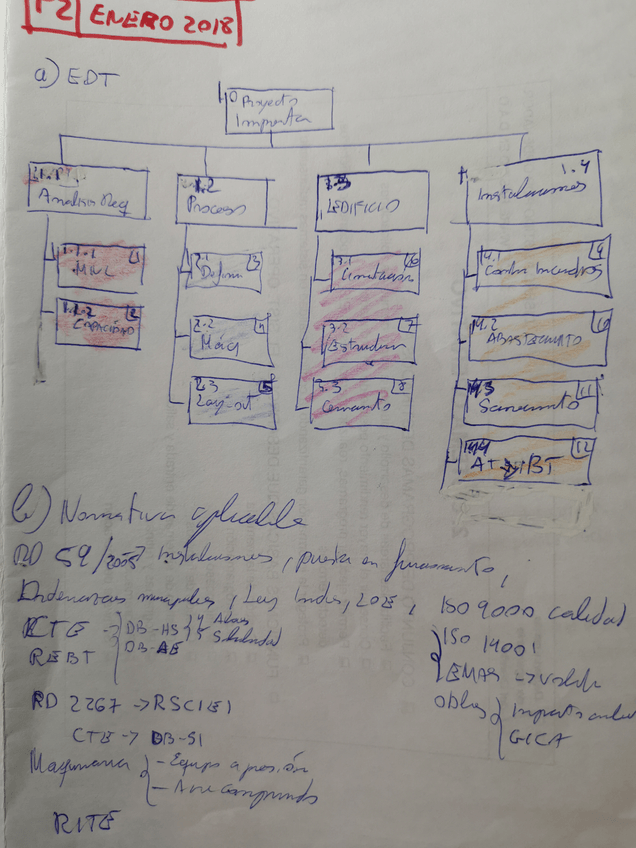 P2 ENERO 2018
a) EDT
Proyecto
Imprenta
1.1
Análisis Req
1.2
Proceso
EDIFICIO
1.4
Instalaciones
1.1.1
1
1.1.2
2
CAPACIDAD
2.1
3
2.2
4
Máq
2.3
5
Layout
3.1
6
Cimentación
3.2
7
Estructura
3.3
8
Cerramiento
4.1
9
Contra Incendios
4.2
ABASTECIMIENTO
4.3
11
Saneamiento
4.4
12
AT y BT
b) Normativa aplicable
RD 59/2005 Instalaciones, puesta en funcionamiento,
Ordenanzas municipales, Ley Indus, LOE, ISO 9000 calidad
CTE → DB-HS 4 Abas
5 Salubridad
DB-AE
REBT
ISO 14001
EMAS → valida
RD 2267 → RSCIEI
CTE → DB-SI
Oblig
Impacto
GICA
Maquinaria
- Equipo a presión
- Aire comprimido
RITE